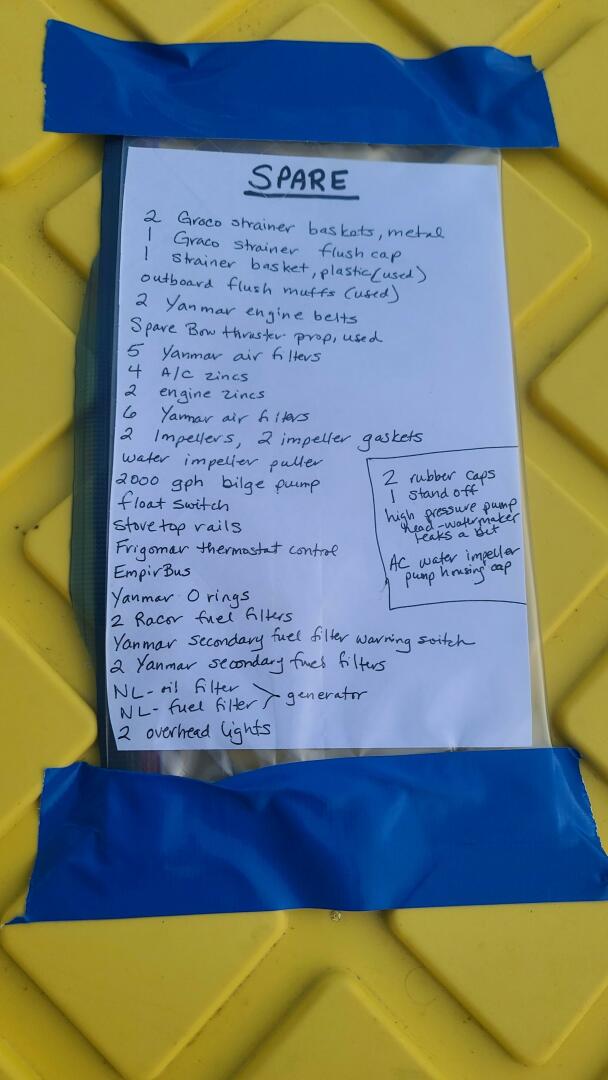 SPARE
2 Groco strainer baskets, metal
1 Graco strainer flush cap
1 strainer basket, plastic (used)
outboard flush muffs (used)
2 Yanmar engine belts
Spare Bow thruster prop, used
5 Yanmar air filters
4 A/C zincs
2 engine zincs
6 Yanmar air filters
2 Impellers, 2 impeller gaskets
water impeller puller
2000 gph bilge pump
float switch
Stove top rails
Frigomar thermostat control
EmpirBus
Yanmar O rings
2 Racor fuel filters
Yanmar secondary fuel filter warning switch
2 Yanmar secondary fuel filters
NL- oil filter
NL- fuel filter
generator
2 overhead lights
2 rubber caps
1 stand off
high pressure pump
head-watermaker
leaks a bit
AC water impeller
pump housing cap